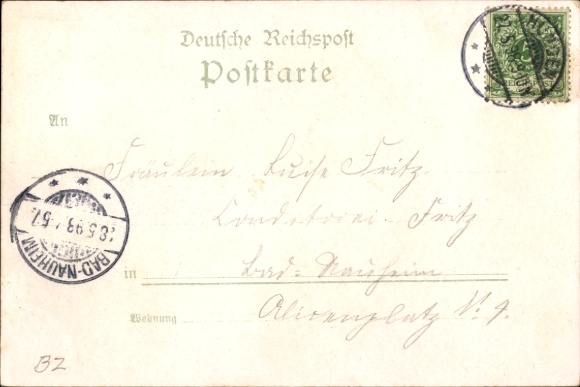 Deutsche Reichspost
Postkarte
An
Fräulein Luise Fritz
Conditorei Fritz
in Bad-Nauheim
Wohnung Alicenplatz No 9.
BAD-NAUHEIM
BZ